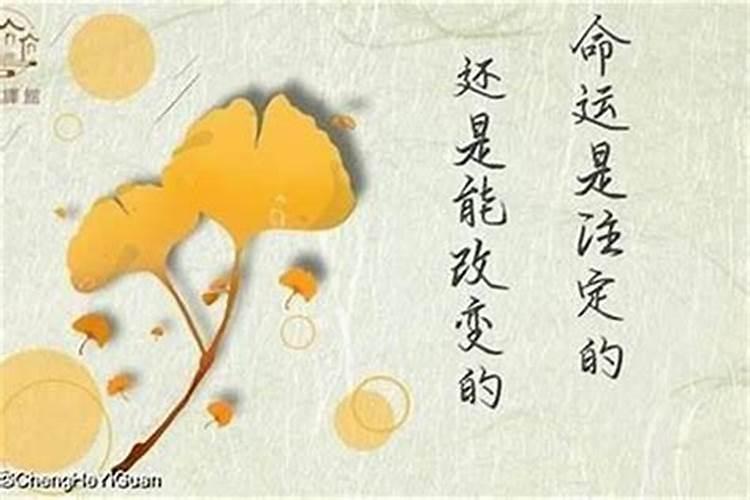 命运是注定的
还是能改变的
庫館
©ChengHeYiGuan